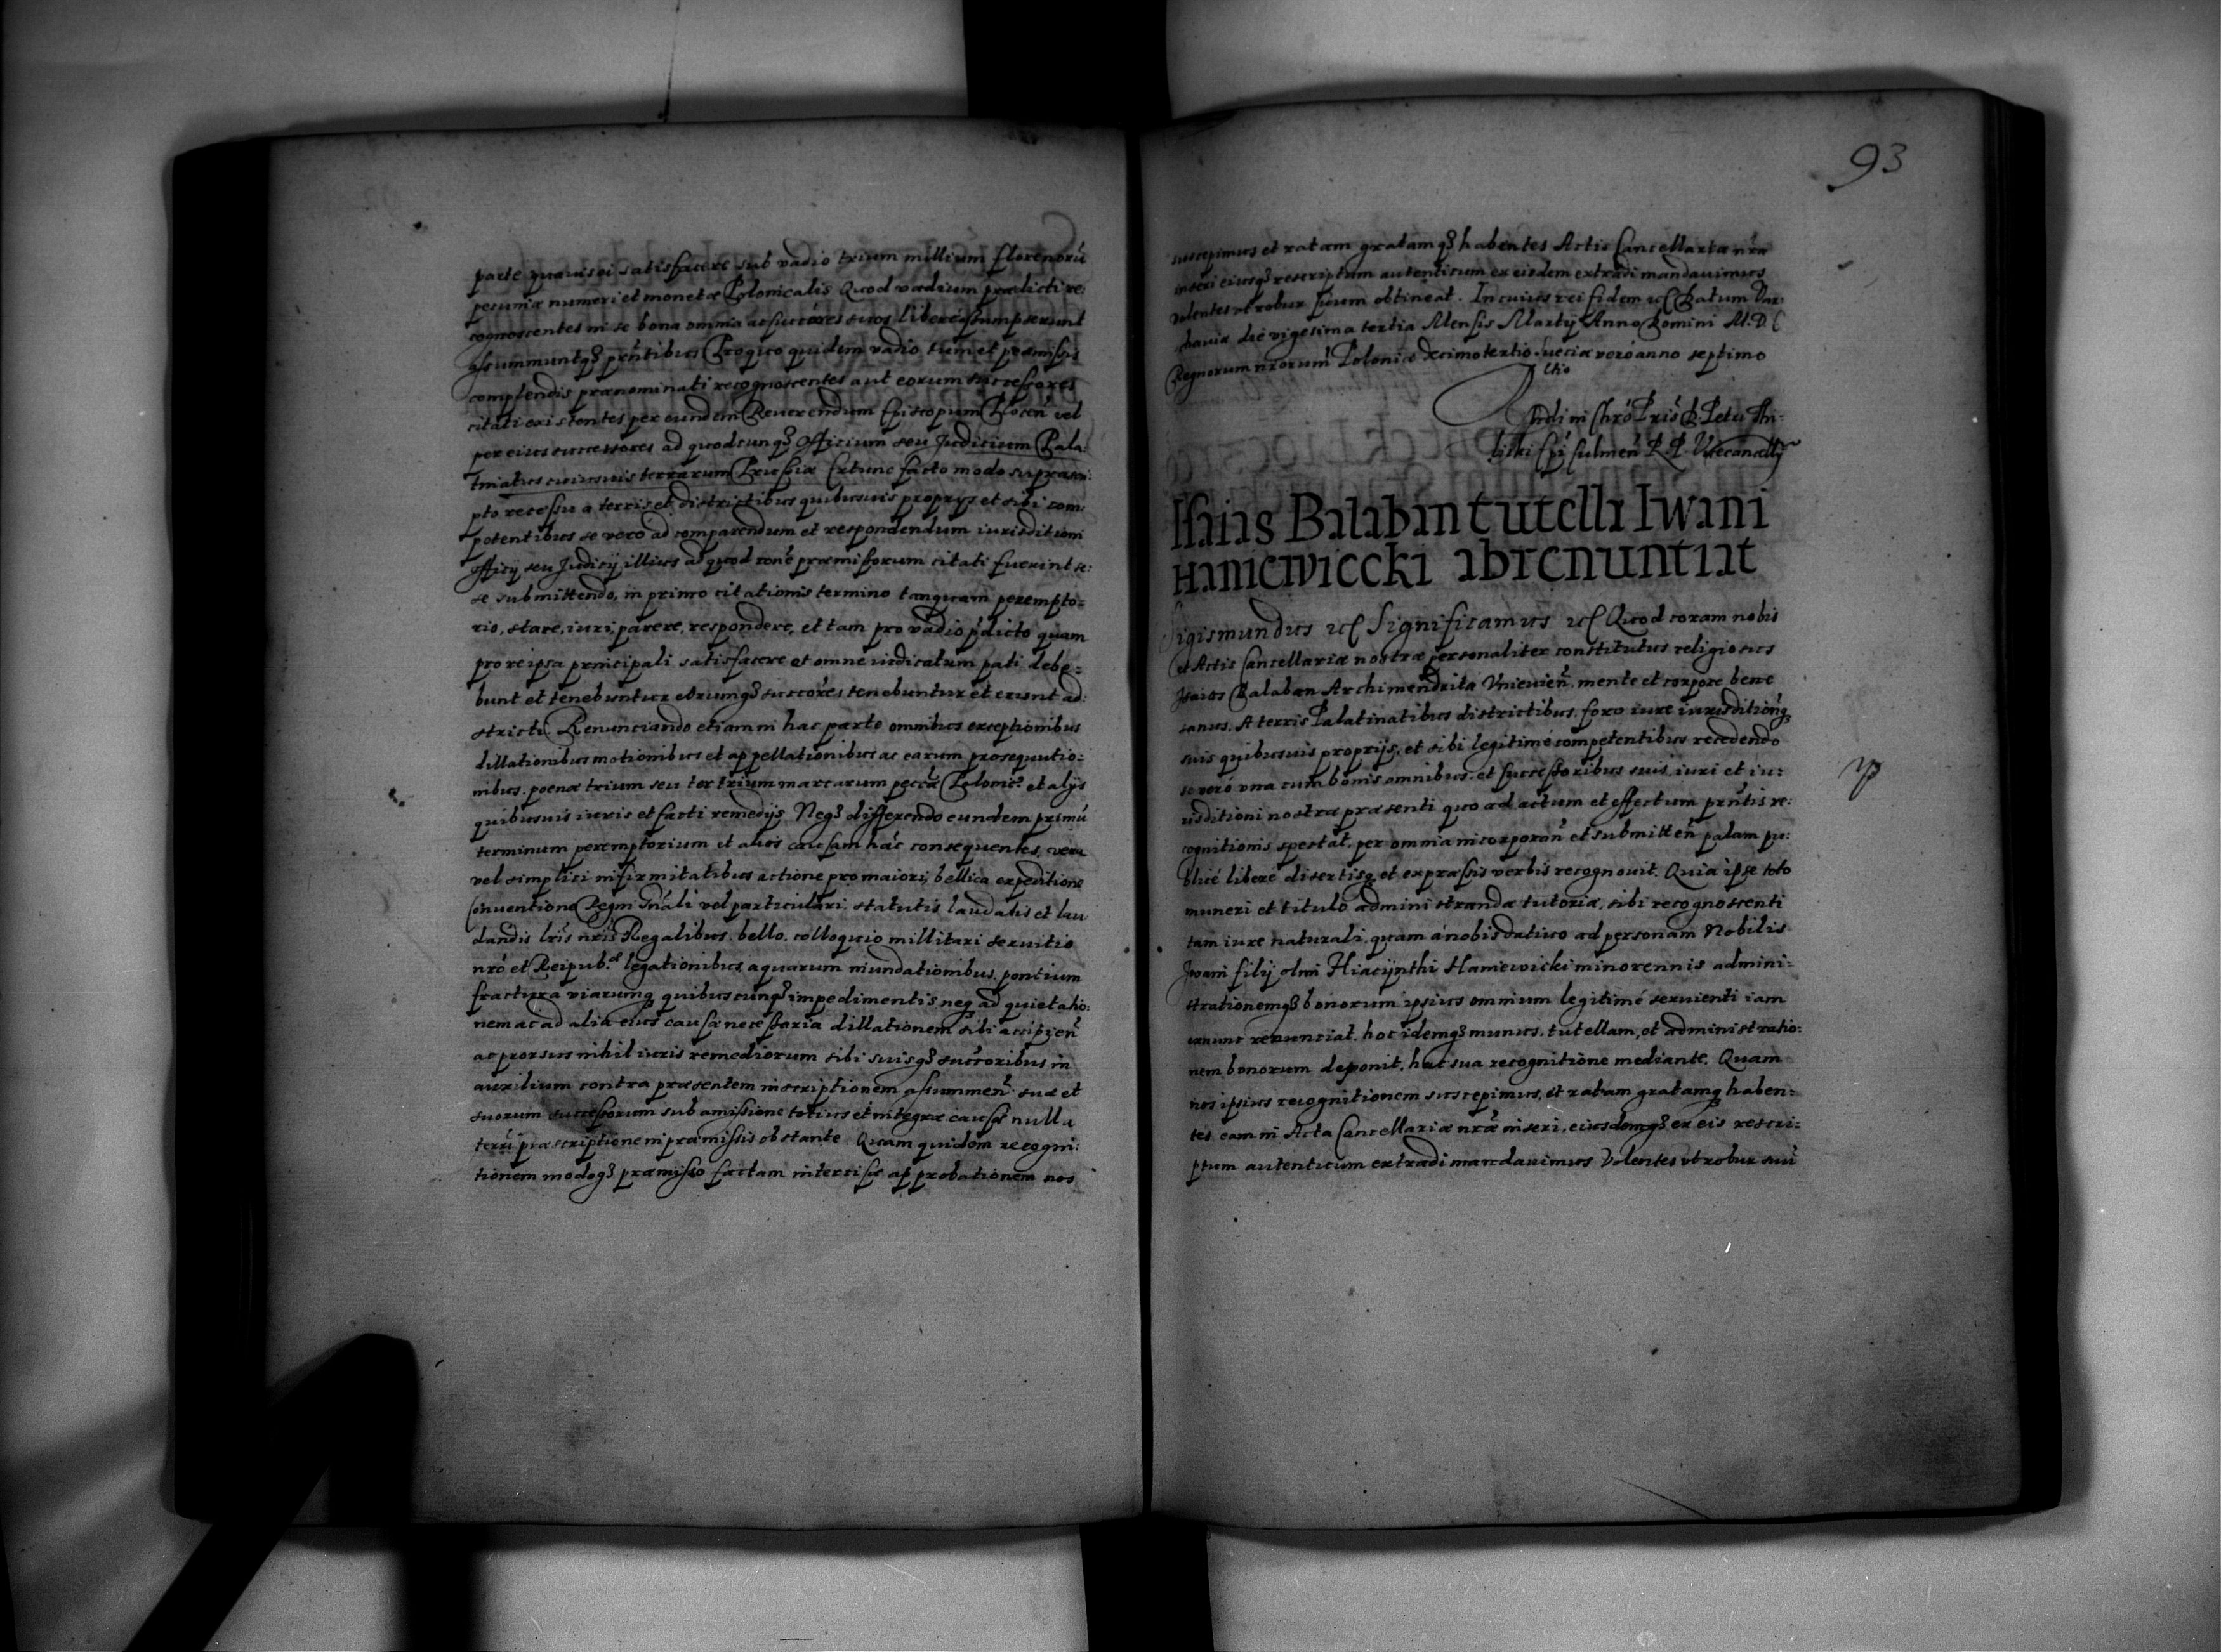 parte quauis ei satisfacere sub vadio trium millium florenorũ
pecuniæ numeri et monetæ Polonicalis Quod vadium prædicti re:
cognoscentes in se bona omnia ac succóres suos libere assumpserunt
assummuntq3 pñtibus Pro quo quidem vadio tum et præmissis
complendis prænominati recognoscentes aut eorum successores
citati existentes per eundem Reuerendum Episcopum Plocen̄ vel
per eius successores ad quodcunq3 Officium seu Judicium Pala:
tinatus cuiusuis terrarum Prussiæ Extunc facto modo suprascri:
pto recessu a terris et districtibus quibusuis proprys et sibi com:
petentibus se vero ad comparendum et respondendum iurisditioni
Officy seu Judicy illius ad quod ronē præmissorum citati fuerint se:
se submittendo, in primo citationis termino tanquam perempto=
rio, stare, iuri parere, respondere, et tam pro vadio pdicto quam
pro re ipsa principali satisfacere et omne iudicatum pati debe=
bunt et tenebuntur eorumq3 succóres tenebuntur et erunt ad:
stricti. Renunciando etiam in hac parte omnibus exceptionibus
dillationibus motionibus et appellationibus ac earum prosequutio:
nibus. poenæ trium seu ter trium marcarum peccæ Polonic. et alijs
quibusuis iuris et facti remedijs Neq3 differendo eundem primũ
terminum peremptorium et alios causam hãc consequentes, vera
vel simplici infirmitatibus actione pro maiori, bellica expeditione
Conuentione Regni Gnãli vel particulari. statutis laudatis et lau
dandis lris nris Regalibus. bello. colloquio millitari seruitio
nró et Reipub.æ legationibus aquarum inundationibus, pontium
fractura viarumq quibuscunq3 impedimentis neq ad quietatio:
nem ac ad alia eius causæ necessaria dillationem sibi accipien̄
ac prorsus nihil iuris remediorum sibi suisq3 succoribus in
auxilium contra præsentem inscriptionem assummen̄. suæ et
suorum successorum sub amissione totius et integræ causæ nulla
terrũ præscriptione in præmissis obstante. Quam quidem recogni:
tionem modoq3 præmisso factam intercisæ approbationem nos
93
suscepimus et ratam gratamq3 habentes Actis Cancellariæ nræ
inseri eiusq3 rescriptum autenticum ex eisdem extradi mandauimus
volentes vt robur suum obtineat. In cuius rei fidem etc Datum Var:
shauiæ die vigesima tertia Mensis Martij Anno Domini M.D.C
Regnorum nrorum Poloniæ decimotertio Sueciæ vero anno septimo
Rndi in Chró Pris D. Petri Thi-
liski Epi Culmen̄ R.P. Vicecancelly
Isaias Balaban tutella Iwani
Haniewiecki abrenuntiat
Sigismundus etc Significamus etc Quod coram nobis
et Actis Cancellariæ nostræ personaliter constitutus religiosus
Isaias Balaban Archimendrita Vnieuien̄. mente et corpore bene
sanus. A terris Palatinatibus districtibus. foro iure iurisditionq3
suis quibusuis proprijs, et sibi legitimé competentibus recedendo
se veró vna cum bonis omnibus et successoribus suis, iuri et iu:
risditioni nostræ præsenti quo ad actum et effectum prñtis re:
cognitionis spectat. per omnia incorporan̄ et submitten̄ palam pu:
blicé libere disertisq, et expressis verbis recognouit. Quia ipse toto
muneri et titulo administrandæ tutoriæ, sibi recognoscenti
tam iure naturali, quam á nobis datiuo ad personam Nobilis
Jwani filij olim Hiacÿnthi Haniewicki minorennis admini:
strationemq3 bonorum ipsius omnium legitimé seruienti iam
ex nunc renunciat. hoc idemq3 munus, tutellam, et administratio:
nem bonorum deponit, hac sua recognitione mediante. Quam
nos ipsius recognitionem suscepimus, et ratam gratamq haben:
tes eam in Acta Cancellariæ nræ inseri, eiusdemq3 ex eis rescri:
ptum autenticum extradi mandauimus Volentes vt robur suũ